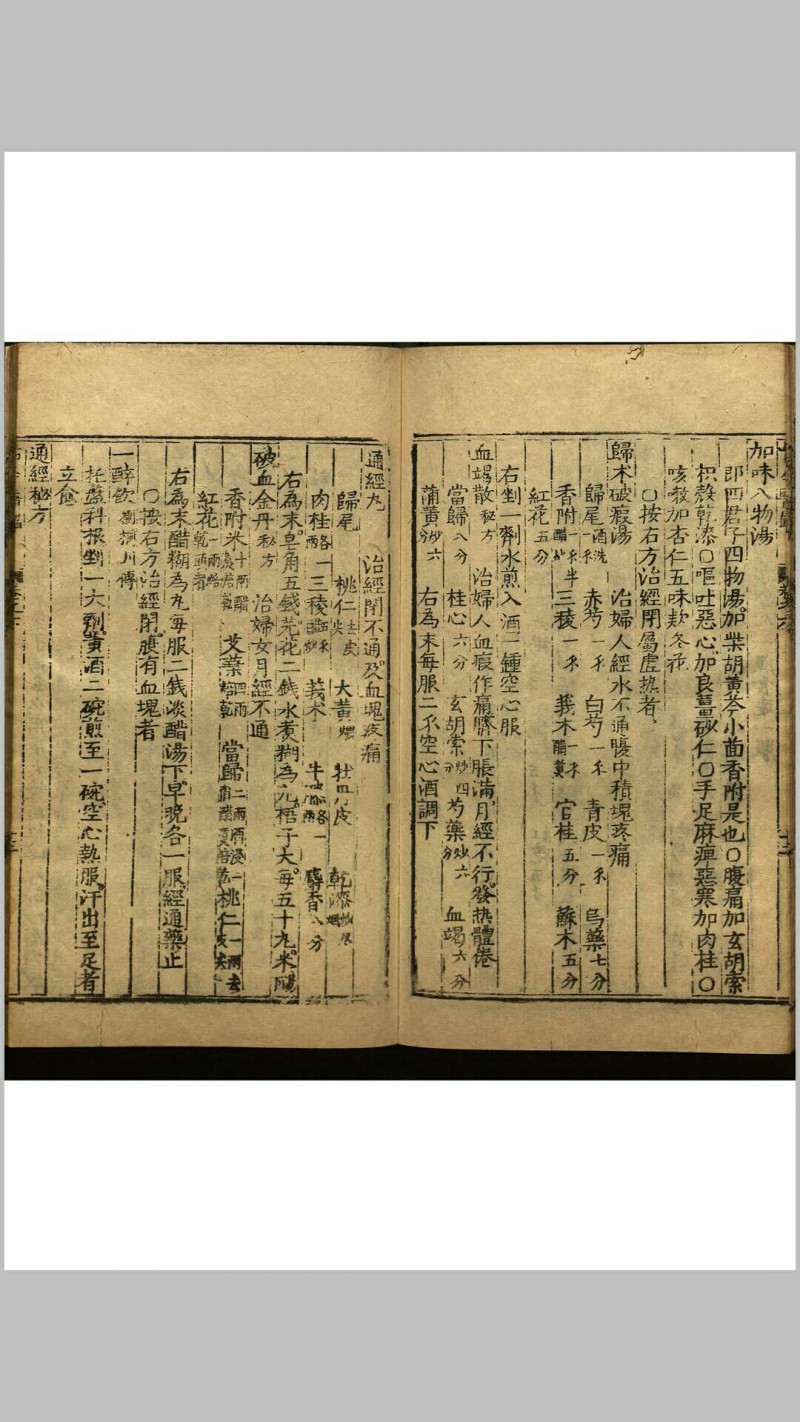 加味八物湯
即四君子四物湯加柴胡黃芩小茴香附是也〇腹痛加玄胡索
枳殼乾漆〇嘔吐惡心加良薑砂仁〇手足麻痺惡寒加肉桂〇
咳救加杏仁五味欵冬花
〇按右方治經閉屬虛热者
歸木破癥湯 治婦人經水不通腹中積塊疼痛
歸尾酒洗一錢 赤芍一錢 白芍一錢 青皮一錢 烏藥七分
香附醋炒一錢半 三稜一錢 莪木醋煑一錢 官桂五分 蘇木五分
紅花五分
右剉一劑水煎入酒一鍾空心服
血竭散秘方 治婦人血瘕作痛臍下脹滿月經不行發热體倦
當歸八分 桂心六分 玄胡索炒四分 芍藥炒六分 血竭六分
蒲黃炒六 右為末每服二錢空心酒調下
通經丸 治經閉不通及血塊疼痛
歸尾 桃仁去皮尖 大黃煨 牡丹皮 乾漆
肉桂各一兩 三稜 莪木 牛膝各一兩 麝香八分
右為末皂角五錢芫花二錢水煑糊為丸梧子大每五十丸米湯
破血金丹秘方 治婦女月經不通
香附米 艾葉 當歸 桃仁
紅花一兩
右為末醋糊為丸每服二錢淡醋湯下早晚各一服經通藥止
〇按右方治經閉腹有血塊者
一醉飲劉桐川傳
托盤科根剉一大劑黃酒二碗煎至一碗空心熱服汗出至足者
立愈
通經秘方